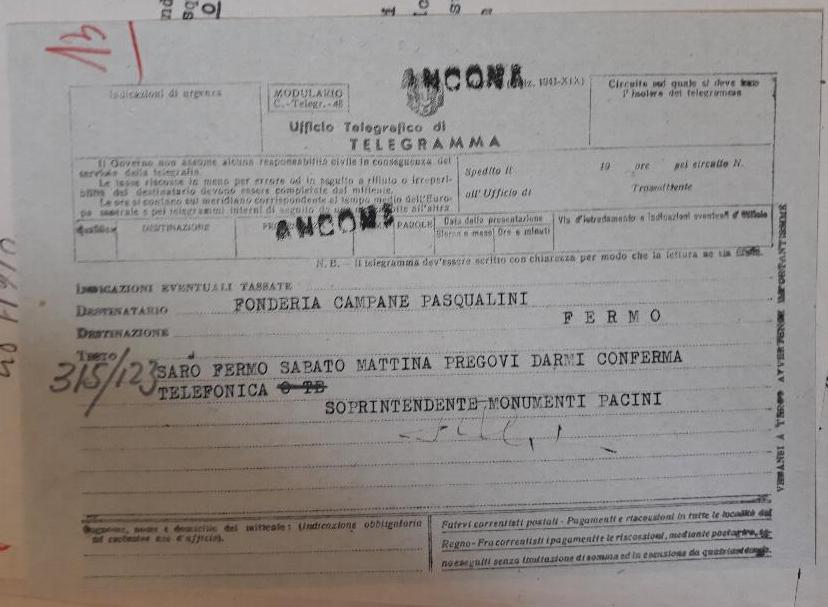 13
ANCONA
(diz. 1941-XIX)
Indicazioni di urgenza
MODULARIO
C.-Telegr.-48
Circuito sul quale si deve
l'inoltro del telegramma
Ufficio Telegrafico di
TELEGRAMMA
Il Governo non assume alcuna responsabilità civile in conseguenza del
servizio della telegrafia.
Le tasse riscosse in meno per errore od in seguito a rifiuto o irreperi-
bilità del destinatario devono essere completate dal mittente.
Le ore si contano sul meridiano corrispondente al tempo medio dell'Euro-
pa centrale e pei telegrammi interni di seguito da
Spedito il 19 ore pel circuito N.
all'Ufficio di Trasmittente
ANCONA
Qualifica
DESTINAZIONE
PAROLE
Data della presentazione
Giorno e mese
Ore e minuti
Via d'istradamento e indicazioni eventuali d'Ufficio
N. B. - Il telegramma dev'essere scritto con chiarezza per modo che la lettura ne sia
INDICAZIONI EVENTUALI TASSATE
DESTINATARIO FONDERIA CAMPANE PASQUALINI
DESTINAZIONE F E R M O
TESTO
315/123 SARO FERMO SABATO MATTINA PREGOVI DARMI CONFERMA
TELEFONICA O TE
SOPRINTENDENTE MONUMENTI PACINI
Cognome, nome e domicilio del mittente: (indicazione obbligatoria
ad esclusivo uso d'ufficio).
Fatevi correntisti postali - Pagamenti e riscossioni in tutte le località del
Regno - Fra correntisti i pagamenti e le riscossioni, mediante postagiro,
eseguiti senza limitazione di somma ed in esenzione da qualsiasi
VERSANTI A TERGO AVVERTENZE IMPORTANTISSIME